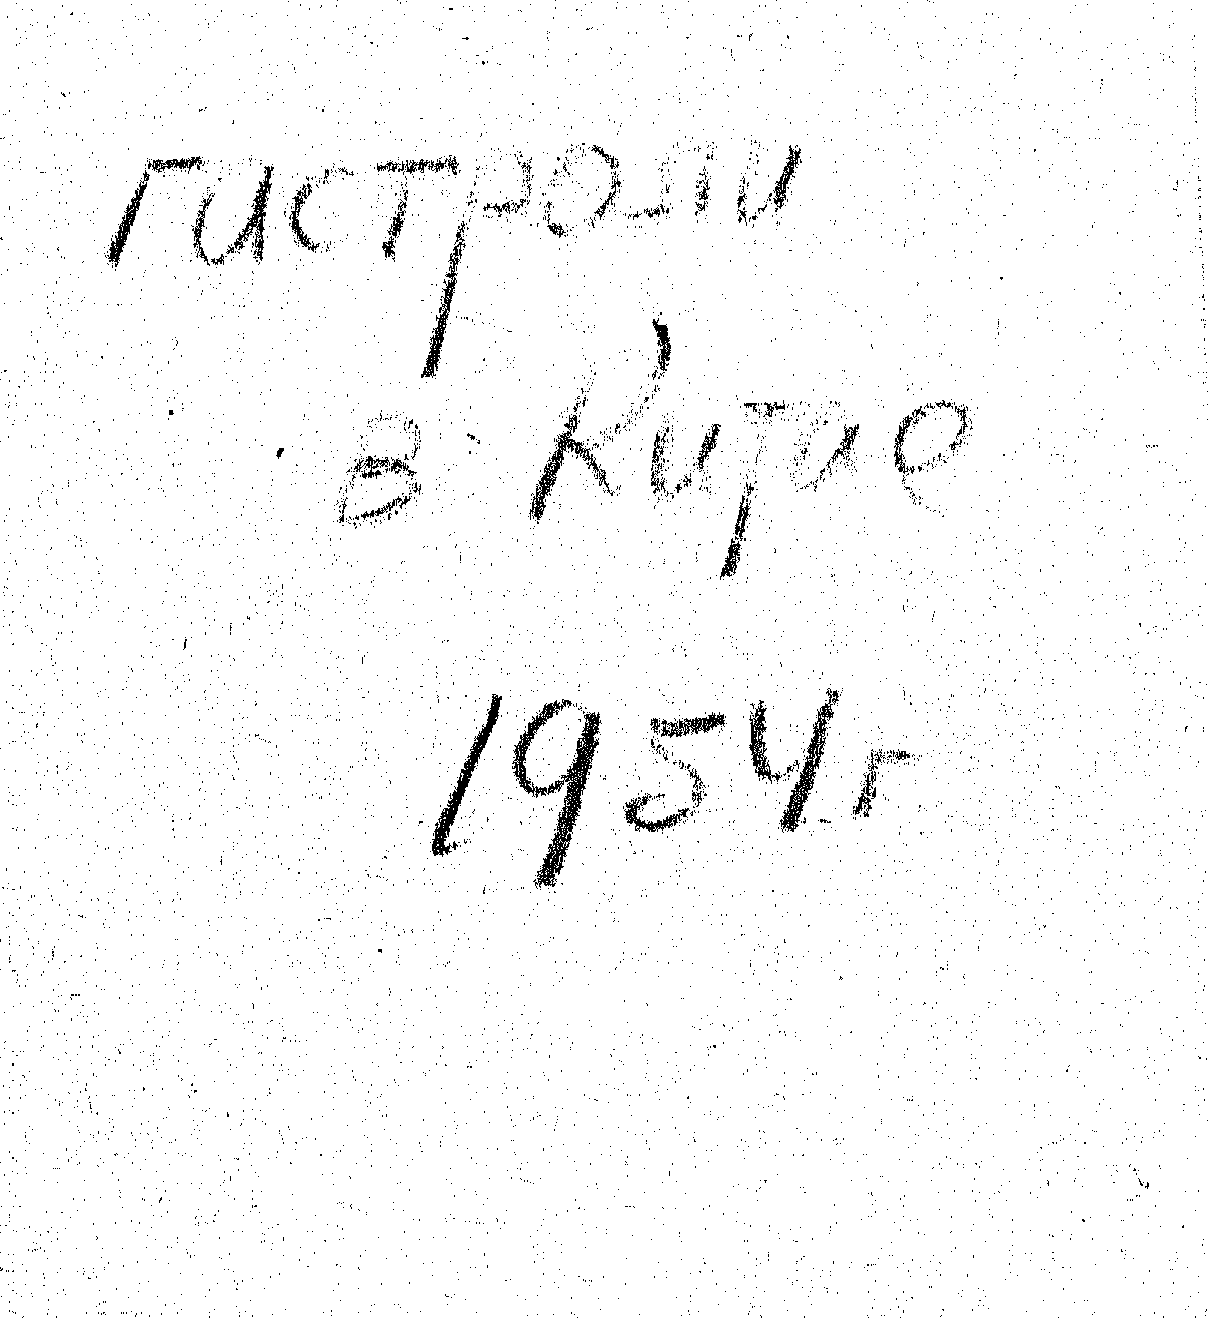 гастроли
в Китае
1954 г